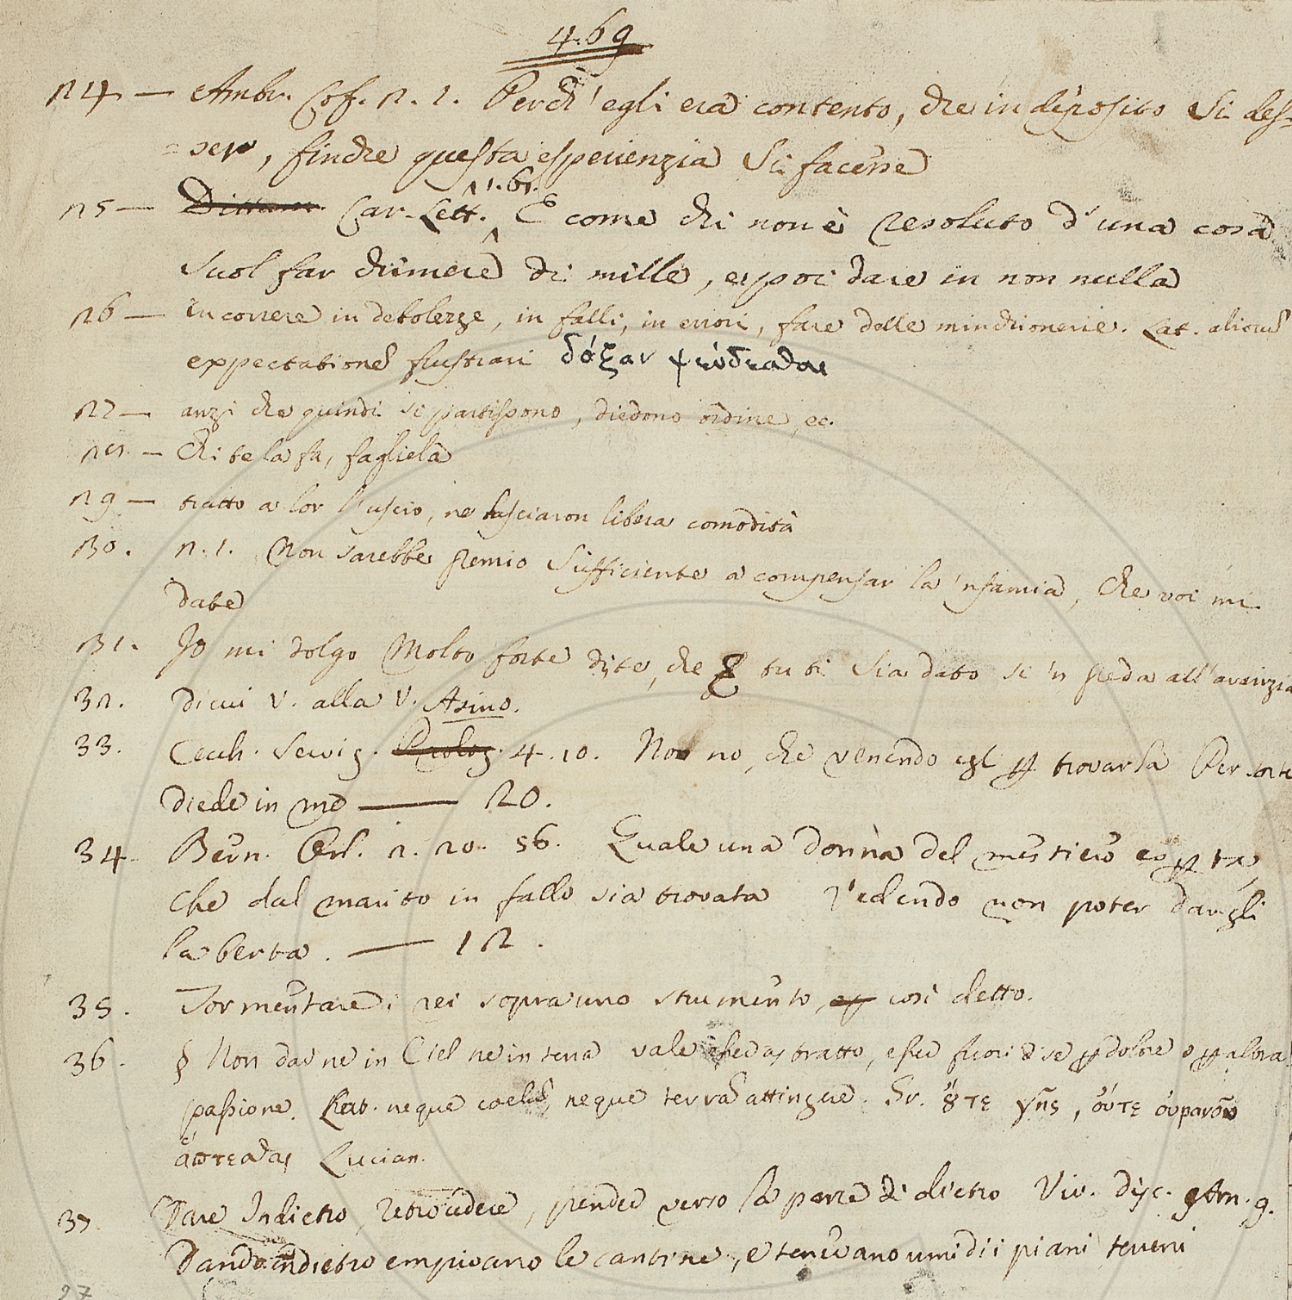 469
24 — Ambr. Cof. 2. 1. Perch' egli era contento, che in diposito si des-
=sero, finche questa esperienzia si facesse
25 — Car. Lett. 1. 61. E come chi non è resoluto d'una cosa
suol far chimere di mille, e poi dare in non nulla
26 — Incorrere in debolezze, in falli, in errori, fare delle minchionerie. Lat. alicuius
expectationē frustrari δόξαν ψεύδεσθαι
27 — anzi che quindi si partissono, diedono ordine, ec.
28. — Chi te la fa, fagliela
29 — tratto a lor l'uscio, ne lasciaron libera comodità
30. n. 1. Non sarebbe premio sufficiente a compensar la 'nfamia, che voi mi
date
31. Io mi dolgo molto forte dite, che tu ti sia dato si 'n preda all'avarizia
32. Dicui V. alla V. Asino.
33. Cecch. Servig. 4. 10. No no, che venendo egl ꝑ trovarla Per sorte
diede in me — 20.
34. Bern. Orl. 2. 20. 56. Quale una donna del mestiero
che dal marito in fallo sia trovata Vedendo non poter dargli
la berta. — 12.
35. Tormentare i rei sopra uno strumento così detto.
36. § Non dar ne in Ciel ne in terra vale astratto, fuori di se ꝑ dolore o ꝑ altra
passione. Lat. neque coelū, neque terrā attingere. Gr. ὄυτε γῆς, ὄυτε ὀυρανοῦ
ἅπτεσθαι Lucian.
37. Dare Indietro, retrocedere, pender verso la parte di dietro Viv. Disc. Arn. 9.
Dando indietro empivano le cantine, e tenevano umidi i piani terreni
27